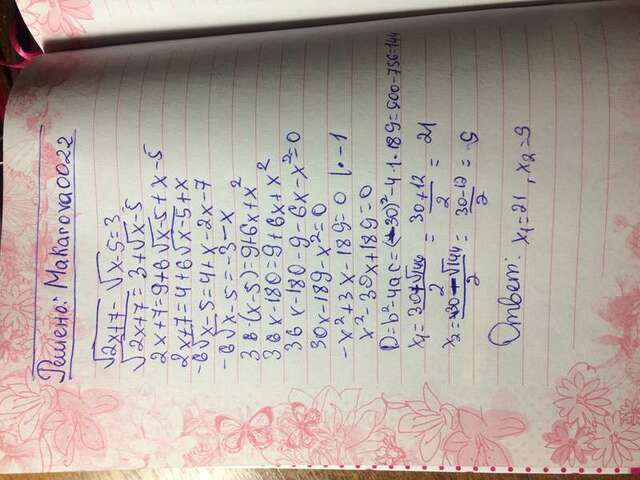 Решено: Makarova0022
√2x+7 - √x-5=3
√2x+7 = 3+√x-5
2x+7=9+6√x-5+x-5
2x+7=4+6√x-5+x
-6√x-5=4+x-2x-7
-6√x-5=-3-x
36·(x-5)=9+6x+x²
36x-180=9+6x+x²
36x-180-9-6x-x²=0
30x-189-x²=0
-x²+3x-189=0 |·-1
x²-30x+189=0
D=b²-4ac=(-30)²-4·1·189=900-756=144
x₁=30+√144/2=30+12/2=21
x₂=30-√144/2=30-12/2=9
Ответ: x₁=21, x₂=9